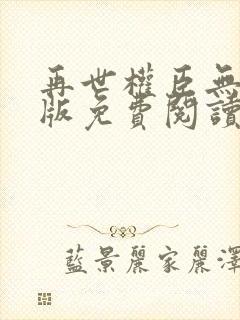 再世權臣無
版免費閱讀
藍景麗家麗澤